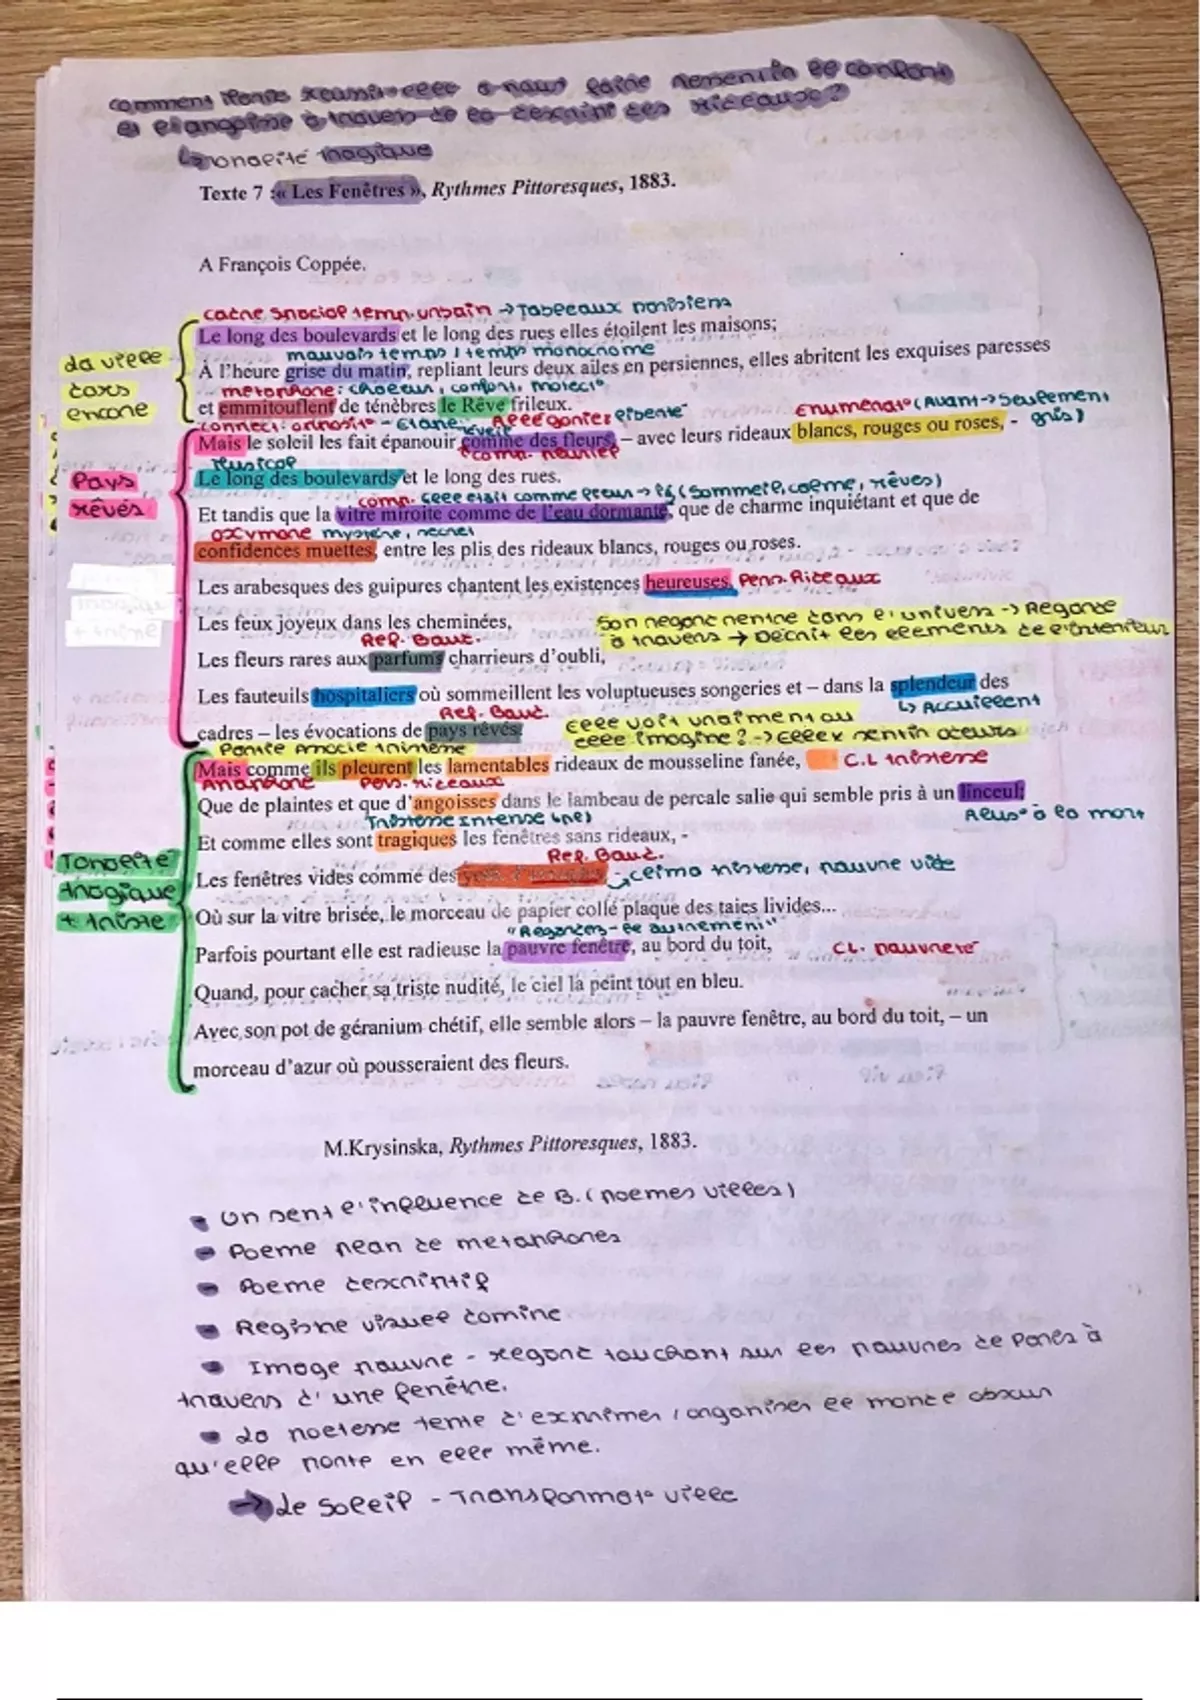 comment
à travers
tragique
Texte 7 : « Les Fenêtres », Rythmes Pittoresques, 1883.
A François Coppée.
cadre spaciotemp. urbain → Tableaux parisiens
Le long des boulevards et le long des rues elles étoilent les maisons;
mauvais temps / temps monocrome
la ville dors encore
À l'heure grise du matin, repliant leurs deux ailes en persiennes, elles abritent les exquises paresses
metaphore : chaleur, confort, protect°
et emmitouflent de ténèbres le Rêve frileux.
Enumérat° (Avant → Seulement gris)
Mais le soleil les fait épanouir comme des fleurs, – avec leurs rideaux blancs, rouges ou roses, -
Musical
Le long des boulevards et le long des rues.
Pays rêvés
Et tandis que la vitre miroite comme de l'eau dormante, que de charme inquiétant et que de
oxymore mystère, secret
confidences muettes, entre les plis des rideaux blancs, rouges ou roses.
Les arabesques des guipures chantent les existences heureuses, Pers. Rideaux
Les feux joyeux dans les cheminées,
Son regard rentre dans l'univers → Regarde à travers → Décrit les éléments de l'intérieur
Ref. Baud.
Les fleurs rares aux parfums charrieurs d'oubli,
Les fauteuils hospitaliers où sommeillent les voluptueuses songeries et – dans la splendeur des
↳ Accueillent
Ref. Baud.
cadres – les évocations de pays rêvés.
elle voit vraiment ou elle imagine ?
Partie + triste
Mais comme ils pleurent les lamentables rideaux de mousseline fanée,
C.L tristesse
Anaphore Pers. rideaux
Que de plaintes et que d'angoisses dans le lambeau de percale salie qui semble pris à un linceul;
Tristesse intense
Allus° à la mort
Et comme elles sont tragiques les fenêtres sans rideaux, -
Ref. Baud.
Tonalité tragique + triste
Les fenêtres vides comme des
tristesse, pauvre vide
Où sur la vitre brisée, le morceau de papier collé plaque des taies livides...
Parfois pourtant elle est radieuse la pauvre fenêtre, au bord du toit,
CL. pauvreté
Quand, pour cacher sa triste nudité, le ciel la peint tout en bleu.
Avec son pot de géranium chétif, elle semble alors – la pauvre fenêtre, au bord du toit, – un
morceau d'azur où pousseraient des fleurs.
M.Krysinska, Rythmes Pittoresques, 1883.
On sent l'influence de B. (poemes villes)
Poeme plein de metaphores
Poeme descriptif
Registre visuel domine
Image pauvre - regard touchant sur les pauvres de Paris à
travers d'une fenêtre.
La poetesse tente d'exprimer / organiser le monde obscur
qu'elle porte en elle même.
→ Le Soleil - Transformat° ville